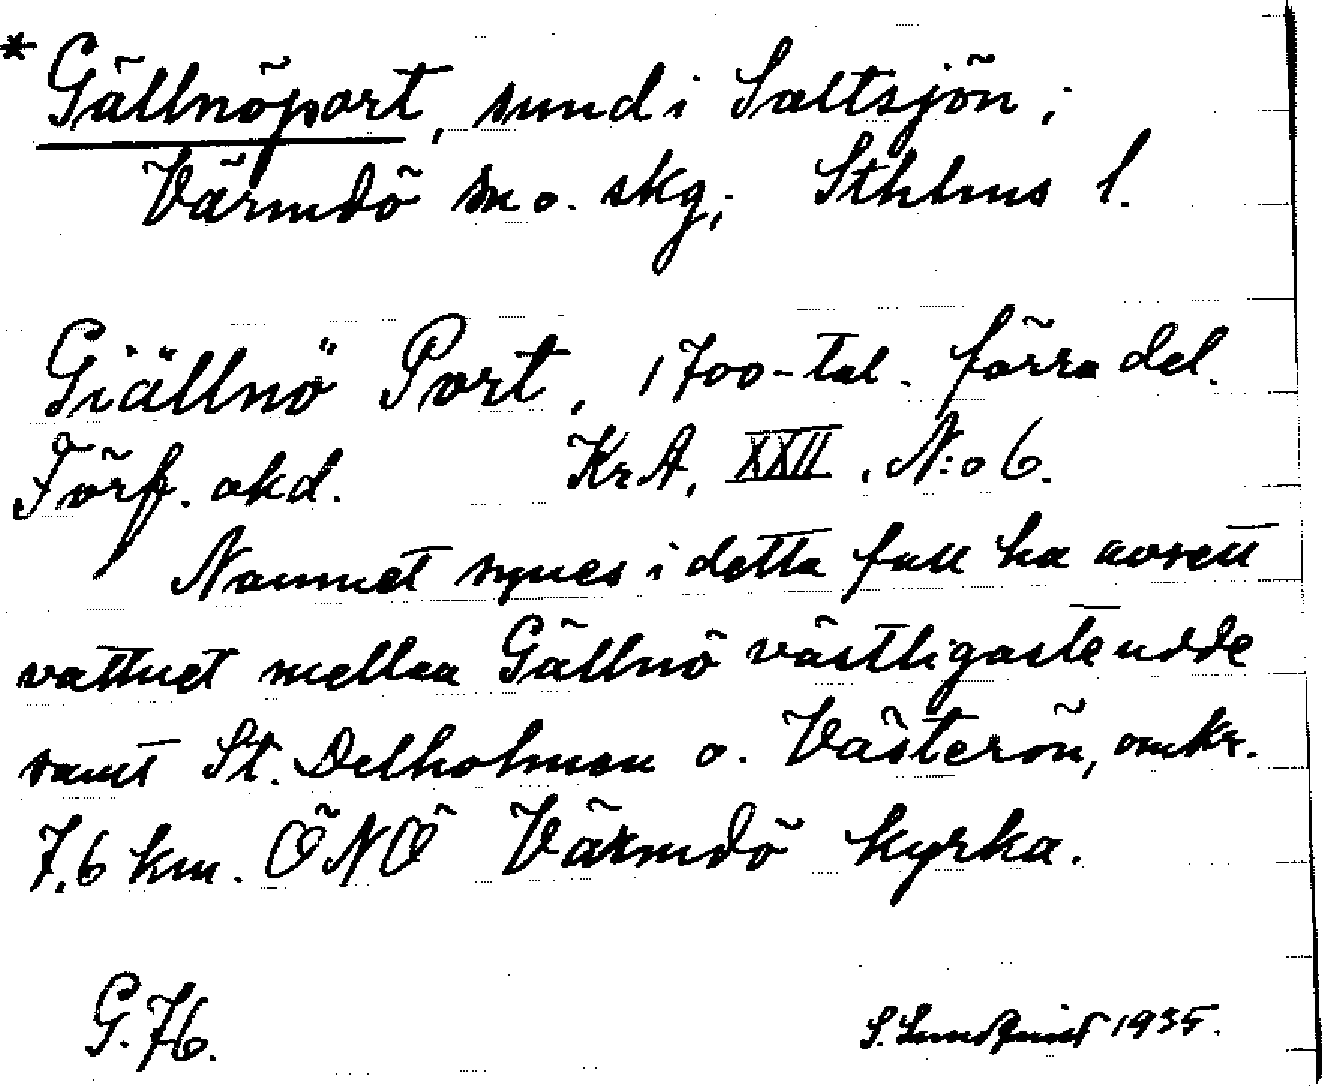 * Gällnöport, sund i Saltsjön;
Värmdö sn o. skg; Sthlms l.
Giällnö Port, 1700-tal. förra del.
Förf. okd. KrA, XXII. N:o 6.
Namnet synes i detta fall ha avsett
vattnet mellan Gällnö västligaste udde
samt St. Delholmen o. Västerön, omkr.
7,6 km. ÖNÖ Värmdö kyrka.
G. 76.
S. Lundquist 1935.